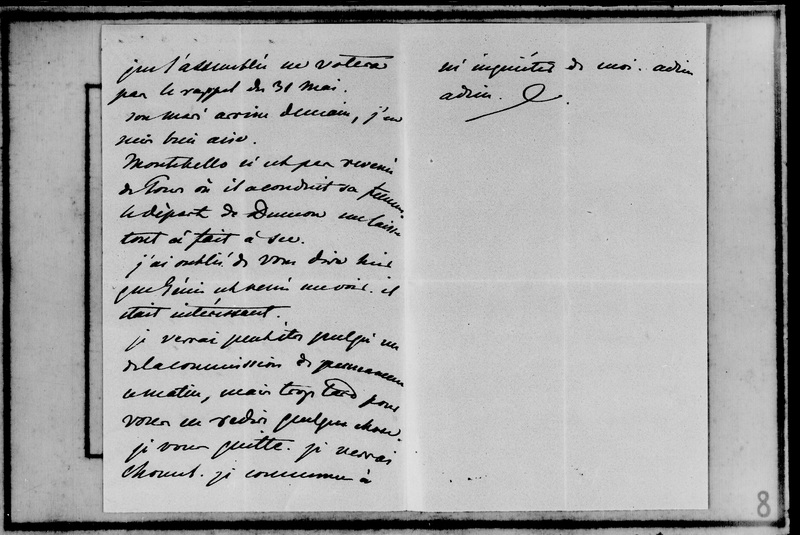 que l'assemblée ne votera
pas le rappel du 31 Mai.
son mari arrive demain, j'en
suis bien aise.
Montebello n'est pas revenu
de Tours où il a conduit sa femme.
le départ de Dumon me laisse
tout à fait à sec.
j'ai oublié de vous dire hier
que Génie est venu me voir. il
était intéressant.
je verrai peutêtre quelqu'un
de la commission de permanence
ce matin, mais trop tard pour
vous en redire quelque chose.
je vous quitte. je verrai
Chomel. je commence à
m'inquiéter de moi. adieu
adieu.
8